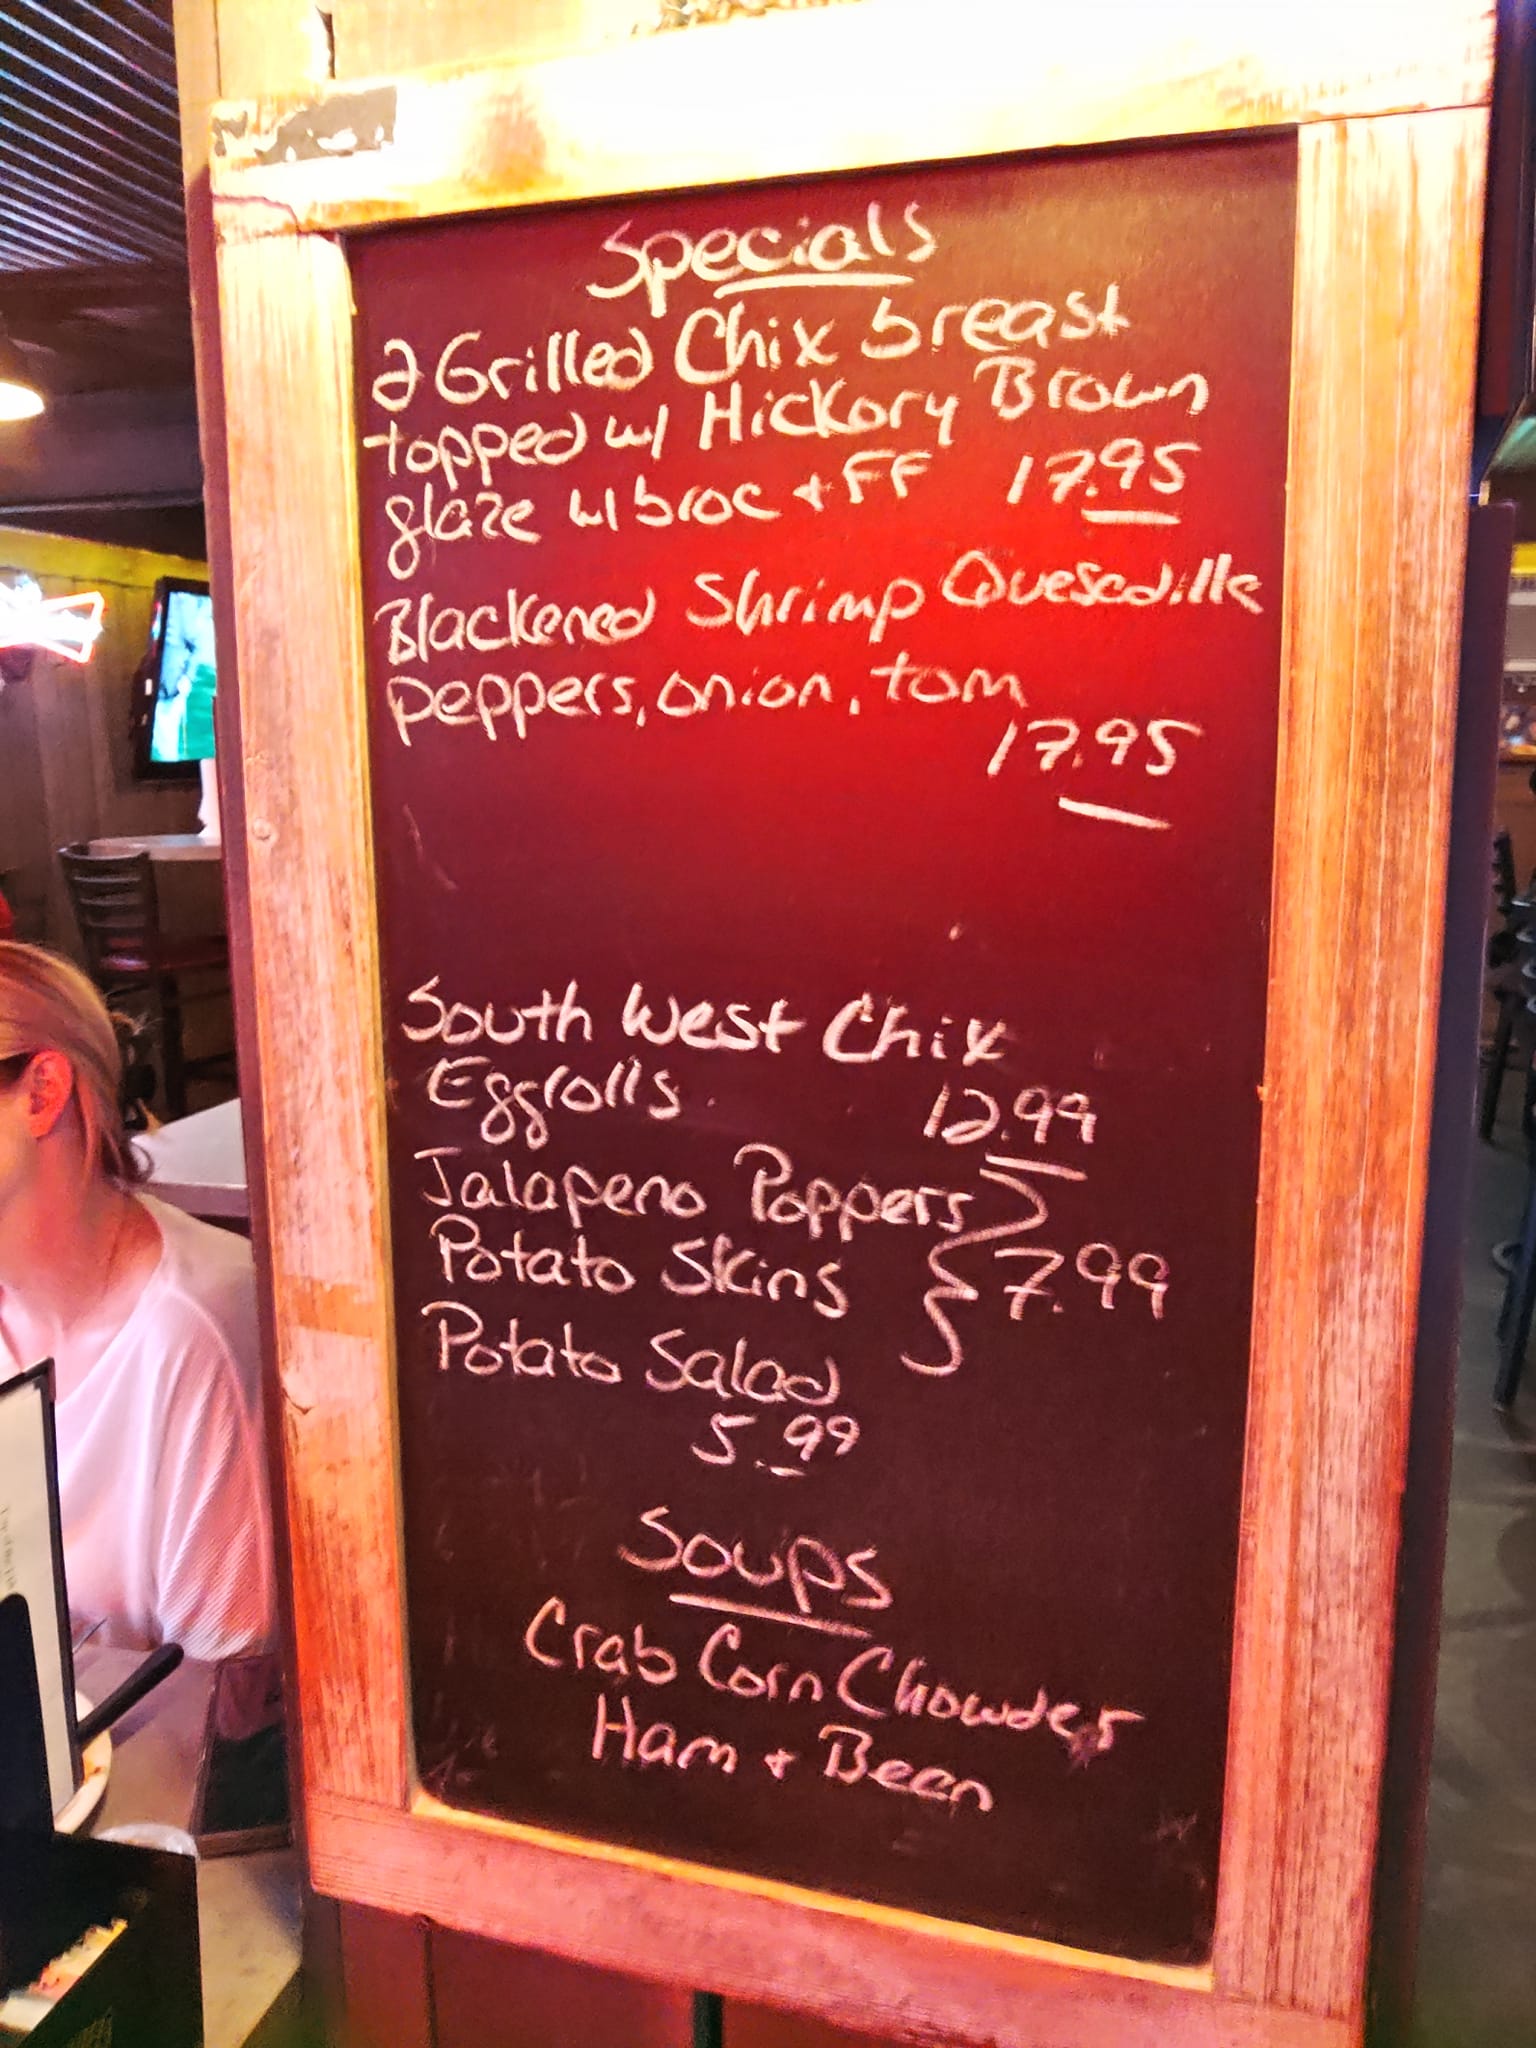 Specials
2 Grilled Chix breast
topped w/ Hickory Brown
glaze w/ broc + FF 17.95
Blackened Shrimp Quesadilla
peppers, onion, tom
17.95
South West Chix
Eggrolls 12.99
Jalapeno Poppers
Potato Skins } 7.99
Potato Salad
5.99
Soups
Crab Corn Chowder
Ham + Bean